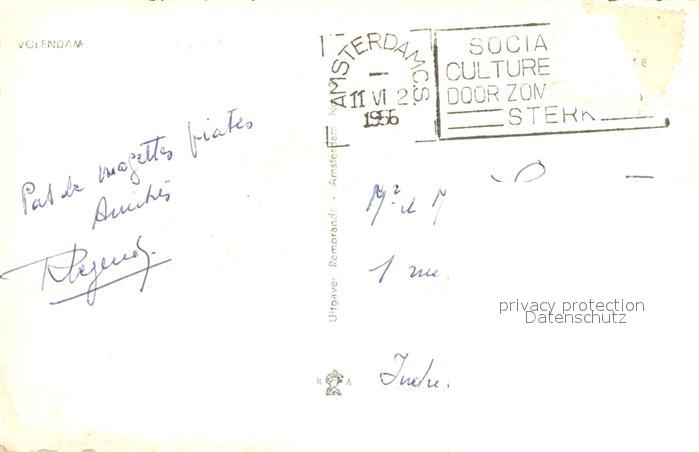 VOLENDAM
Pas de
Amitiés
AMSTERDAM C.S.
11 VI 2
1956
SOCIA
CULTURE
DOOR ZOM
STERK
Uitgaver Rembrandt - Amsterdam N
Mr et M
1 rue
Indre.
R A
privacy protection
Datenschutz